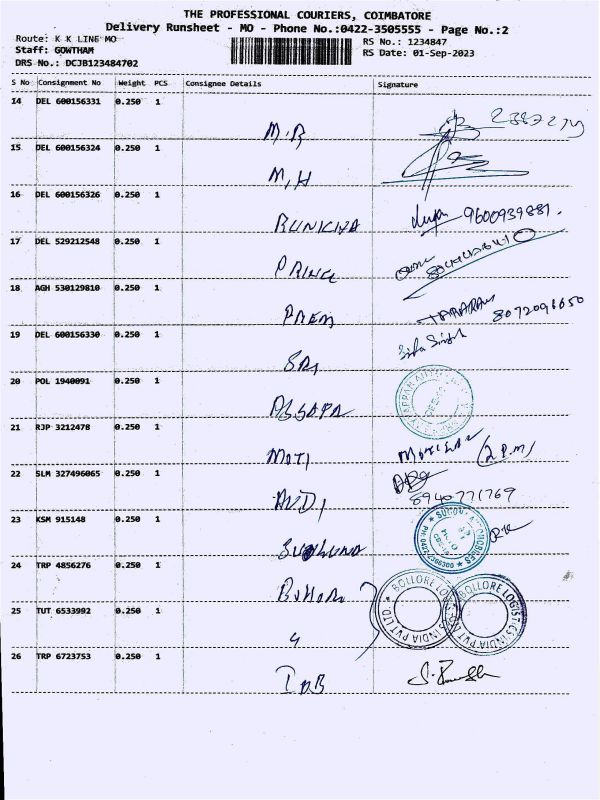 THE PROFESSIONAL COURIERS, COIMBATORE
Delivery Runsheet - MO - Phone No.:0422-3505555 - Page No.:2
Route: K K LINE MO
RS No.: 1234847
Staff: GOWTHAM
RS Date: 01-Sep-2023
DRS No.: DCJB123484702
S No Consignment No Weight PCS Consignee Details Signature
14 DEL 600156331 0.250 1
M.R
15 DEL 600156324 0.250 1
M,H
16 DEL 600156326 0.250 1
RUNICHA 9600939881.
17 DEL 529212548 0.250 1
PRINCE
18 AGH 530129810 0.250 1
PREM 8072096650
19 DEL 600156330 0.250 1
SRI
20 POL 1940091 0.250 1
21 RJP 3212478 0.250 1
MOTI (2 P.M)
22 SLM 327496065 0.250 1
AUDI 8940771769
23 KSM 915148 0.250 1
24 TRP 4856276 0.250 1
BOLLORE LOGISTICS INDIA PVT LTD.
BOLLORE LOGISTICS INDIA PVT LTD.
25 TUT 6533992 0.250 1
26 TRP 6723753 0.250 1
IOB